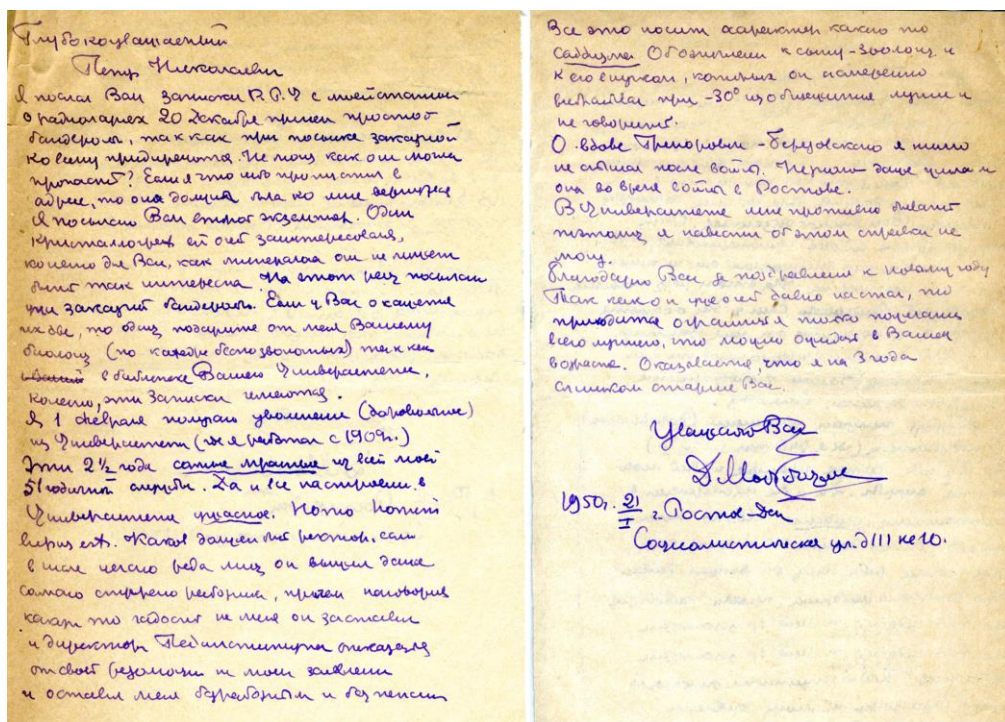 Глубокоуважаемый
Петр Николаевич
Я послал Вам Записки Р.Г.У с моей статьей
о радиоляриях 20 декабря причем простой
бандеролью, так как при посылке заказной
ко всему придираются. Не мог как она могла
пропасть? Если я что либо пропустил в
адресе, то она должна была ко мне вернуться
Я посылаю Вам второй экземпляр. Один
кристаллограф ей очень заинтересовался,
конечно для Вас, как минералога он не может
быть так интересна. На этот раз посылаю
уже заказной бандеролью. Если у Вас окажется
их две, то одну подарите от меня Вашему
биологу (по кафедре беспозвоночных) так как
в библиотеке Вашего Университета,
конечно, эти Записки имеются.
Я 1 февраля получаю увольнение (добровольное)
из Университета (где я работал с 1909г.)
Эти 2½ года самые мрачные из всей моей
51 годичной службы. Да и все настроение в
Университете ужасное. Homo homini
lupus est. Каков должен быть ректор, если
в числе целого ряда лиц он выгнал даже
самого старого работника, причем наговорив
какую то гадость на меня он заставил
и директора Пединститута отказаться
от своей резолюции на моем заявлении
и оставил меня безработным и без пенсии
Все это носит характер какого то
саддизма
к его сыну-зоологу и
которых он намеренно
при -30° из общежития
не говорит.
О вдове Григоровича-Березовского я ничего
не слышал после войны. Неужели даже
она во время войны в Ростове.
В Университете мне противно бывать
поэтому я навести об этом справки не
могу.
Благодарю Вас за поздравление к новому году
Так как он уже очень давно настал, то
приходится ограничиться только пожеланием
всего лучшего, что можно ожидать в Вашем
возрасте. Оказывается, что я на 3 года
слишком старше Вас.
Уважающий Вас
1950г. 21/I г. Ростов-Дон
Социалистическая ул. д 111 кв 10.